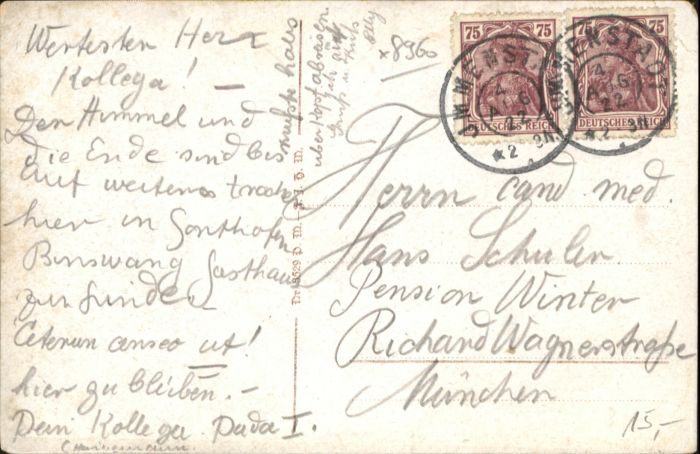 Wertester Herr
Kollega! —
Den Himmel und
Die Erde sind bis
auf weiteres
hier in Sonthofen
Binswang Gasthaus
zu finden
Ceterum censeo ut!
hier zu bleiben. –
Dein Kollega Dada I.
x 8960
75 75
IMMENSTADT
4
AUG
22
*2 3N
DEUTSCHES REICH
IMMENSTADT
4
AUG
22
*2 3N
DEUTSCHES REICH
Herrn cand med.
Hans Schuler
Pension Winter
Richard Wagnerstraße
München
15,-